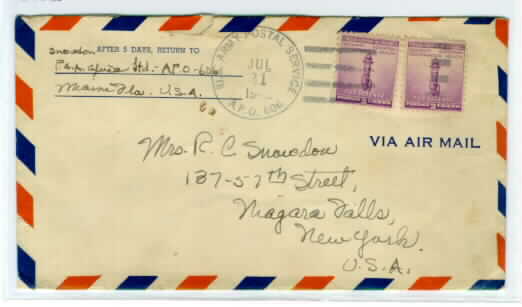 AFTER 5 DAYS, RETURN TO
Snowdon
P.A.A. Africa Ltd. - A.P.O - 606
Miami Fla. U.S.A.
U.S. ARMY POSTAL SERVICE
JUL
21
A.P.O. 606
VIA AIR MAIL
Mrs. R. C. Snowdon
137-57th Street,
Niagara Falls,
New York.
U.S.A.